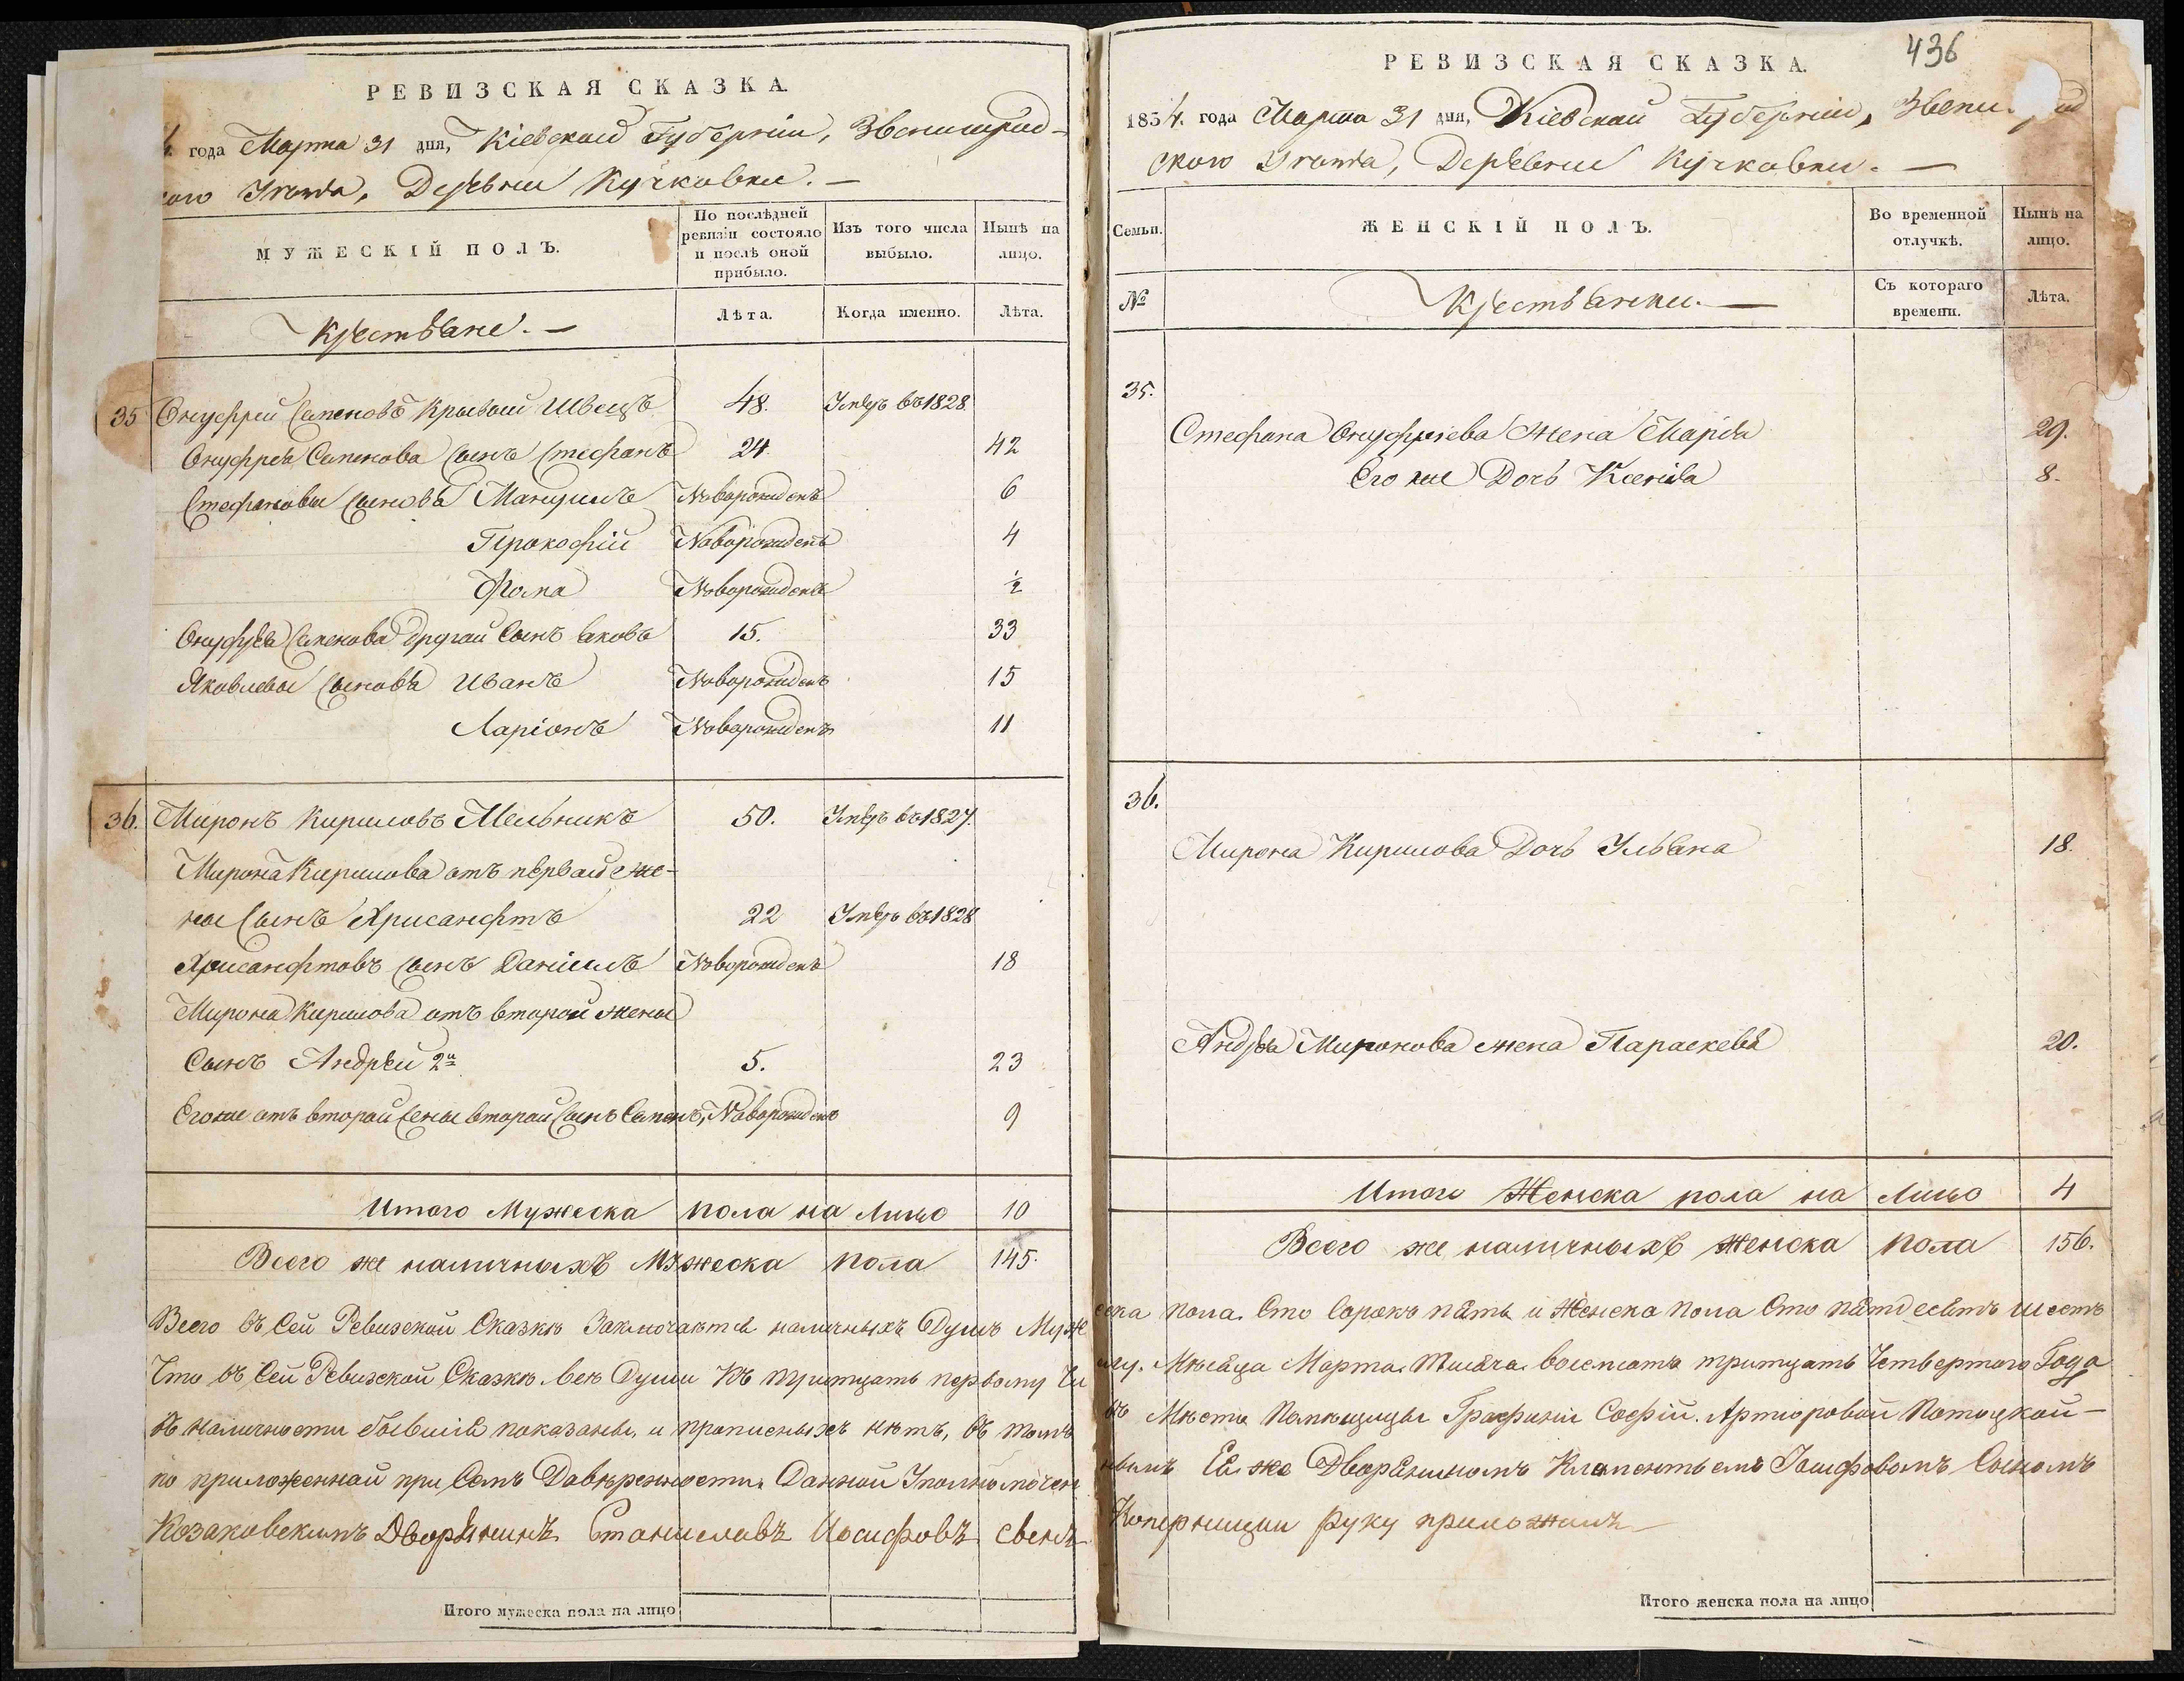 РЕВИЗСКАЯ СКАЗКА.
года Марта 31 дня, Кіевской Губерніи, Звенигород-
кого Уѣзда, Деревни Кучковки. —
МУЖЕСКІЙ ПОЛЪ.
По послѣдней ревизіи состояло и послѣ оной прибыло.
Изъ того числа выбыло.
Нынѣ на лицо.
Крестьяне. —
Лѣта.
Когда именно.
Лѣта.
35 Онуфрей Семеновъ Кривой Швецъ 48. Умеръ въ 1828
Онуфрея Семенова Сынъ Стефанъ 24. 42
Стефановы Сыновья Мануилъ Новорожденъ 6
Прокофій Новорожденъ 4
Фома Новорожденъ ½
Онуфрея Семенова другой Сынъ Яковъ 15. 33
Яковлевы Сыновья Иванъ Новорожденъ 15
Ларіонъ Новорожденъ 11
36. Миронъ Кириловъ Мельникъ 50. Умеръ въ 1827.
Мирона Кирилова отъ первой же-
ны Сынъ Хрисанфтъ 22 Умеръ въ 1828
Хрисанфтовъ Сынъ Даніилъ Новорожденъ 18
Мирона Кирилова отъ второй жены
Сынъ Андрей 2й 5. 23
Его же отъ второй жены второй Сынъ Семенъ, Новорожденъ 9
Итого Мужеска пола на Лицо 10
Всего же наличныхъ Мужеска пола 145.
Всего въ Сей Ревизской Сказкѣ Заключается наличныхъ Душъ Муж
Что въ Сей Ревизской Сказкѣ всѣ Души къ тритцать первому Чи
въ наличности бывшія показаны, и прописныхъ нѣтъ, въ томъ
по приложенной при Семъ Довѣренности, Данной Уполномочен
Козаковскимъ Дворянинъ Станиславъ Иосифовъ сынъ
Итого мужеска пола на лицо
436
РЕВИЗСКАЯ СКАЗКА.
1834. года Марта 31 дня, Кіевской Губерніи, Звени
ского Уѣзда, Деревни Кучковки. —
Семьи.
ЖЕНСКІЙ ПОЛЪ.
Во временной отлучкѣ.
Нынѣ на лицо.
№
Крестьянки. —
Съ котораго времени.
Лѣта.
35.
Стефана Онуфріева Жена Марія 29.
Его же Дочь Ксенія 8.
36.
Мирона Кирилова Дочь Ульяна 18.
Андрея Миронова жена Параскевія 20.
Итого Женска пола на Лицо 4
Всего же наличныхъ женска пола 156.
еска пола Сто Сорокъ пять и Женска пола Сто пятдесятъ шесть
слу. Мѣсяца Марта Тысяча восемсотъ тритцать Четвертого Года
въ Мѣсто Помѣщицы Графини Софіи Артюровой Потоцкой —
Ея же Дворяниномъ Клементьемъ Іосифовымъ Сыномъ
Коперницки руку приложилъ —
Итого женска пола на лицо